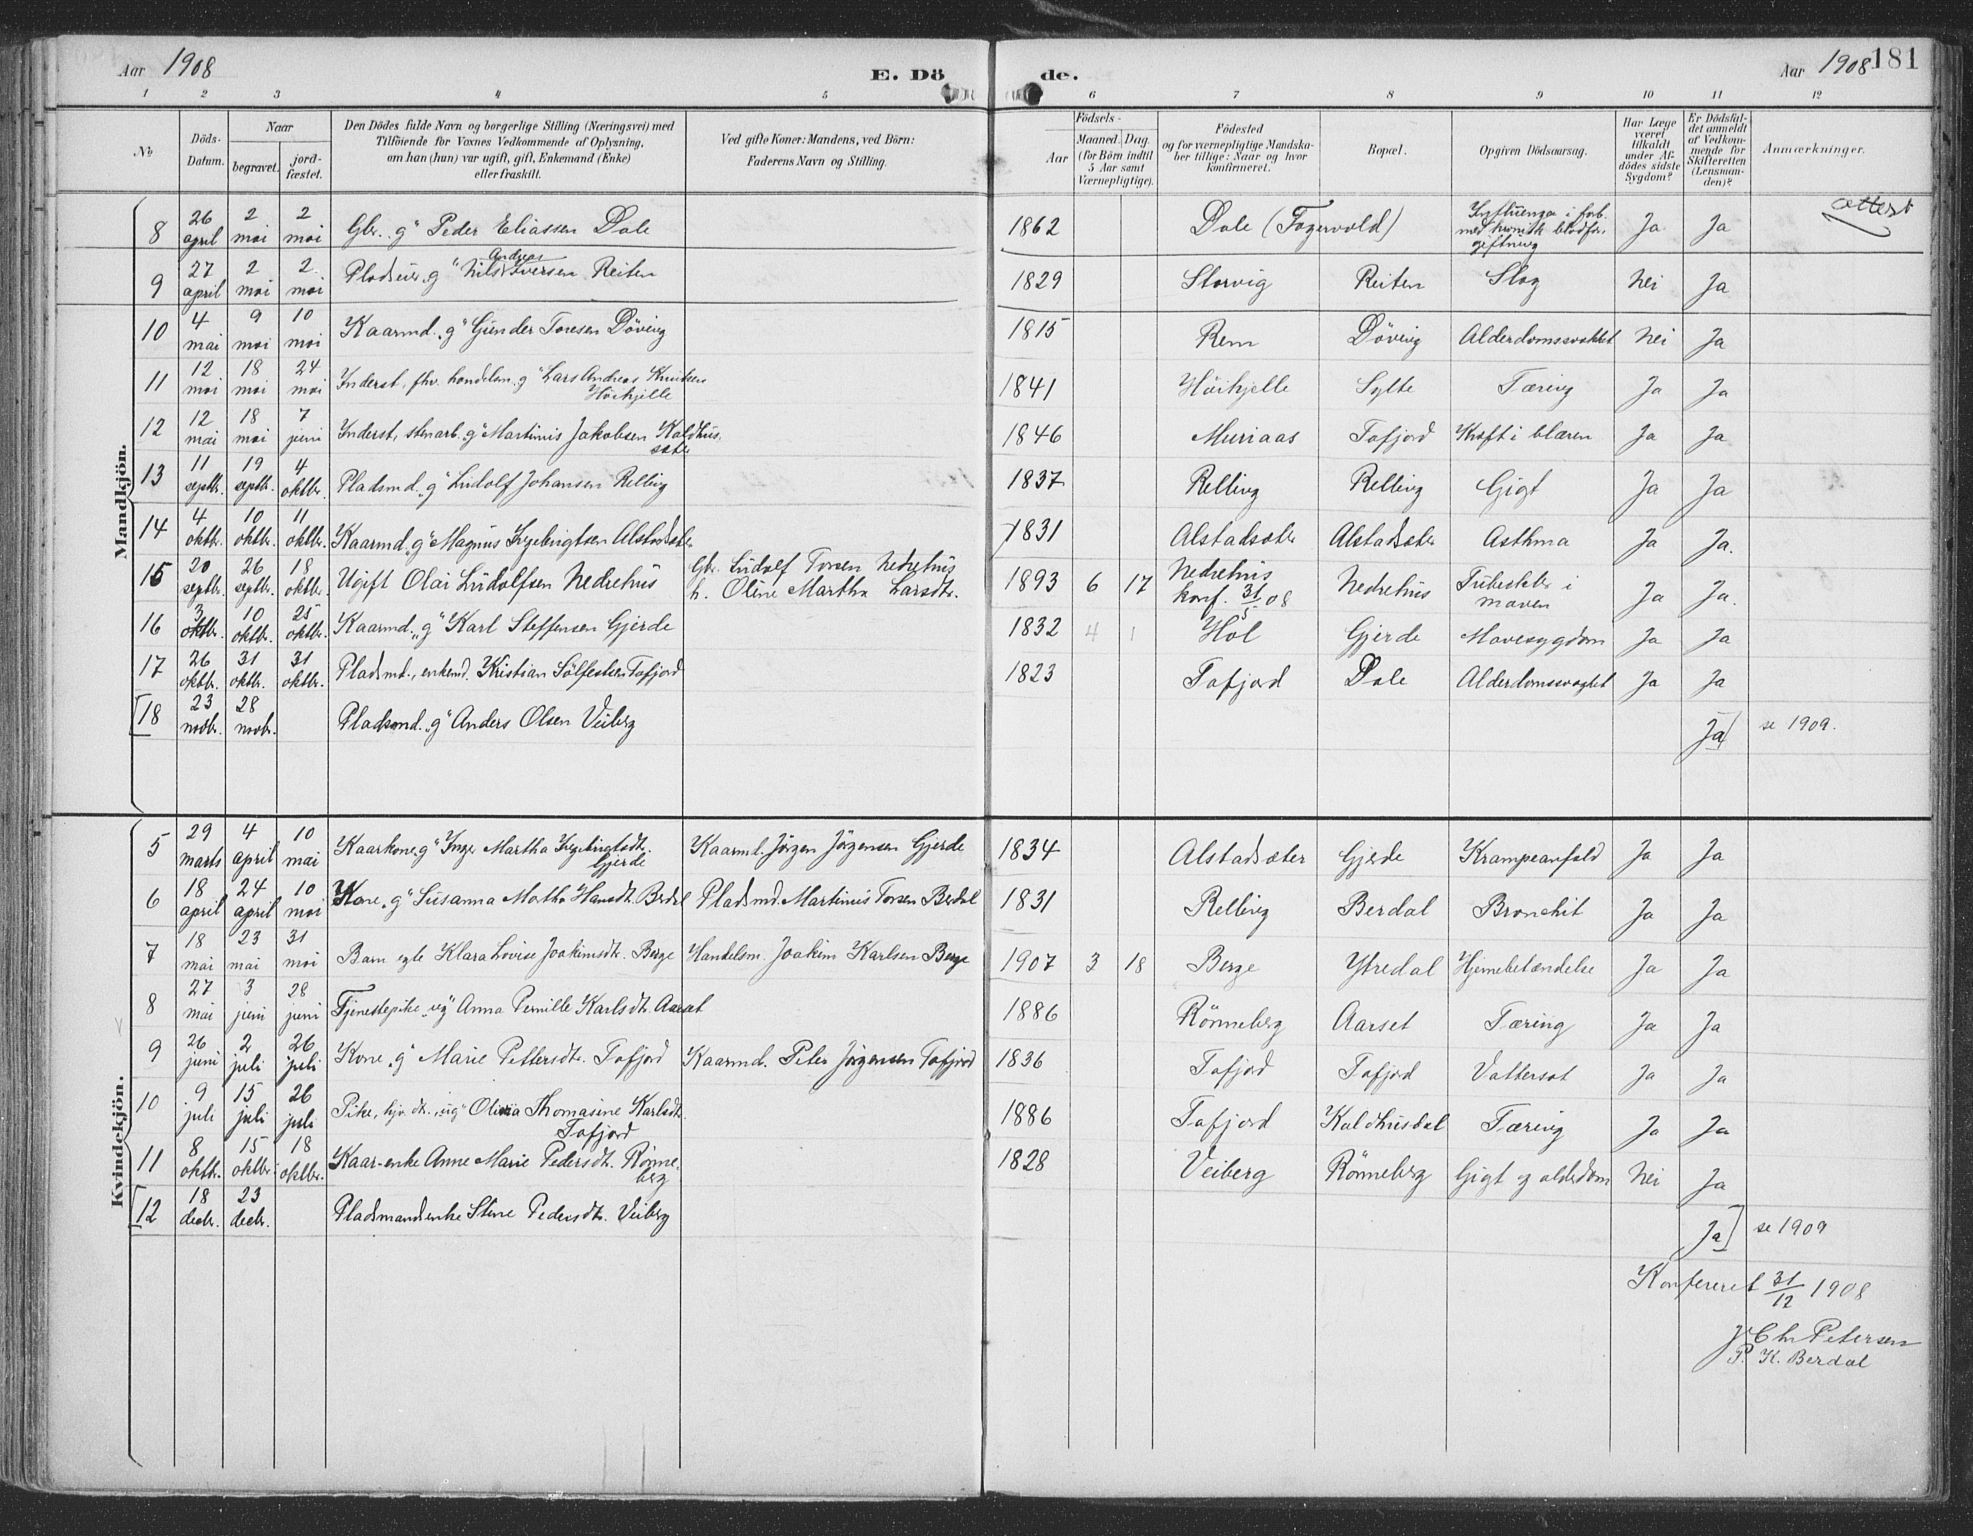 Aar 1908 E. Döde. Aar 1908 181
1 2 3 4 5 6 7 8 9 10 11 12
No Döds-Datum. Naar begravet. jordfæstet. Den Dödes fulde Navn og borgerlige Stilling (Næringsvei) med Tilföiende for Voxnes Vedkommende af Oplysning, om han (hun) var ugift, gift, Enkemand (Enke) eller fraskilt. Ved gifte Koner: Mandens, ved Börn: Faderens Navn og Stilling. Födsels- Aar Maaned. Dag. (for Börn indtil 5 Aar samt Værnepligtige). Födested og for værnepligtige Mandskaber tillige: Naar og hvor konfirmeret. Bopæl. Opgiven Dödsaarsag. Har Læge været tilkaldt under Afdödes sidste Sygdom? Er Dödsfaldet anmeldt af Vedkommende for Skifteretten (Lensmanden)? Anmærkninger.
Mandkjön.
8 26 april 2 mai 2 mai Gbr. „g" Peder Eliassen Dale 1862 Dale (Fagervold) Influenza i forb. med kronisk blodforgiftning Ja Ja attest
9 27 april 2 mai 2 mai Pladseier „g" Nils Andreas Iversen Reiten 1829 Storvig Reiten Slag Nei Ja
10 4 mai 9 mai 10 mai Kaarmd. „g" Gunder Toresen Döving 1815 Rem Döving Alderdomssvakhet Nei Ja
11 12 mai 18 mai 24 mai Inderst, fhv. handelsm. „g" Lars Andreas Knutsen Höikjelle 1841 Höikjelle Sylte Tæring Ja Ja
12 12 mai 18 mai 7 juni Inderst, stenarb. „g" Martinus Jakobsen Kaldhussæter 1846 Muriaas Tafjord Kræft i blæren Ja Ja
13 11 septbr. 19 septbr. 4 oktbr. Pladsmd. „g" Ludolf Johansen Relling 1837 Relling Relling Gigt Ja Ja
14 4 oktbr. 10 oktbr. 11 oktbr. Kaarmd. „g" Magnus Ingebrigtsen Alstadsæter 1831 Alstadsæter Alstadsæter Asthma Ja Ja.
15 20 septbr. 26 septbr. 18 oktbr. Ugift Olai Ludolfsen Nedrehus Gbr. Ludolf Torsen Nedrehus h. Oline Martha Larsdtr. 1893 6 17 Nedrehus konf. 31/5 08 Nedrehus Tuberkler i maven Ja Ja.
16 3 oktbr. 10 oktbr. 25 oktbr. Kaarmd. „g" Karl Steffensen Gjerde 1832 4 1 Hol Gjerde Mavesygdom Ja Ja
17 26 oktbr. 31 oktbr. 31 oktbr. Pladsmd., enkemd. Kristian Sölfestsen Tafjord 1823 Tafjord Dale Alderdomssvaghet Ja Ja
[18 23 novbr. 28 novbr. Pladsmd. „g" Anders Olsen Veiberg Ja] se 1909.
Kvindekjön.
5 29 marts 4 april 10 mai Kaarkone „g" Inger Martha Ingebrigtsdtr. Gjerde Kaarmd. Jörgen Jörgensen Gjerde 1834 Alstadsæter Gjerde Krampeanfald Ja Ja
6 18 april 24 april 10 mai Kone „g" Susanna Martha Hansdtr. Berdal Pladsmd. Martinus Torsen Berdal 1831 Relling Berdal Bronchit Ja Ja
7 18 mai 23 mai 31 mai Barn egte Klara Lovise Joakimsdtr. Berge Handelsm. Joakim Karlsen Berge 1907 3 18 Berge Ytredal Hjernebetændelse Ja Ja
8 27 mai 3 juni 28 juni Tjenestepike „ug" Anna Pernille Karlsdtr. Aarset 1886 Rönneberg Aarset Tæring Ja Ja
9 26 juni 2 juli 26 juli Kone „g" Marie Pettersdtr. Tafjord Kaarmd. Peter Jörgensen Tafjord 1836 Tafjord Tafjord Vattersot Ja Ja
10 9 juli 15 juli 26 juli Pike, hjv. dtr. „ug" Olivia Thomasine Karlsdtr. Tafjord 1886 Tafjord Kaldhusdal Tæring Ja Ja
11 8 oktbr. 15 oktbr. 18 oktbr. Kaar-enke Anne Marie Pedersdtr. Rönneberg 1828 Veiberg Rönneberg Gigt og alderdom Nei Ja
[12 18 decbr. 23 decbr. Pladsmandsenke Stine Pedersdtr. Veiberg Ja] se 1909
Konfereret 31/12 1908
J. Chr Petersen
P. K. Berdal